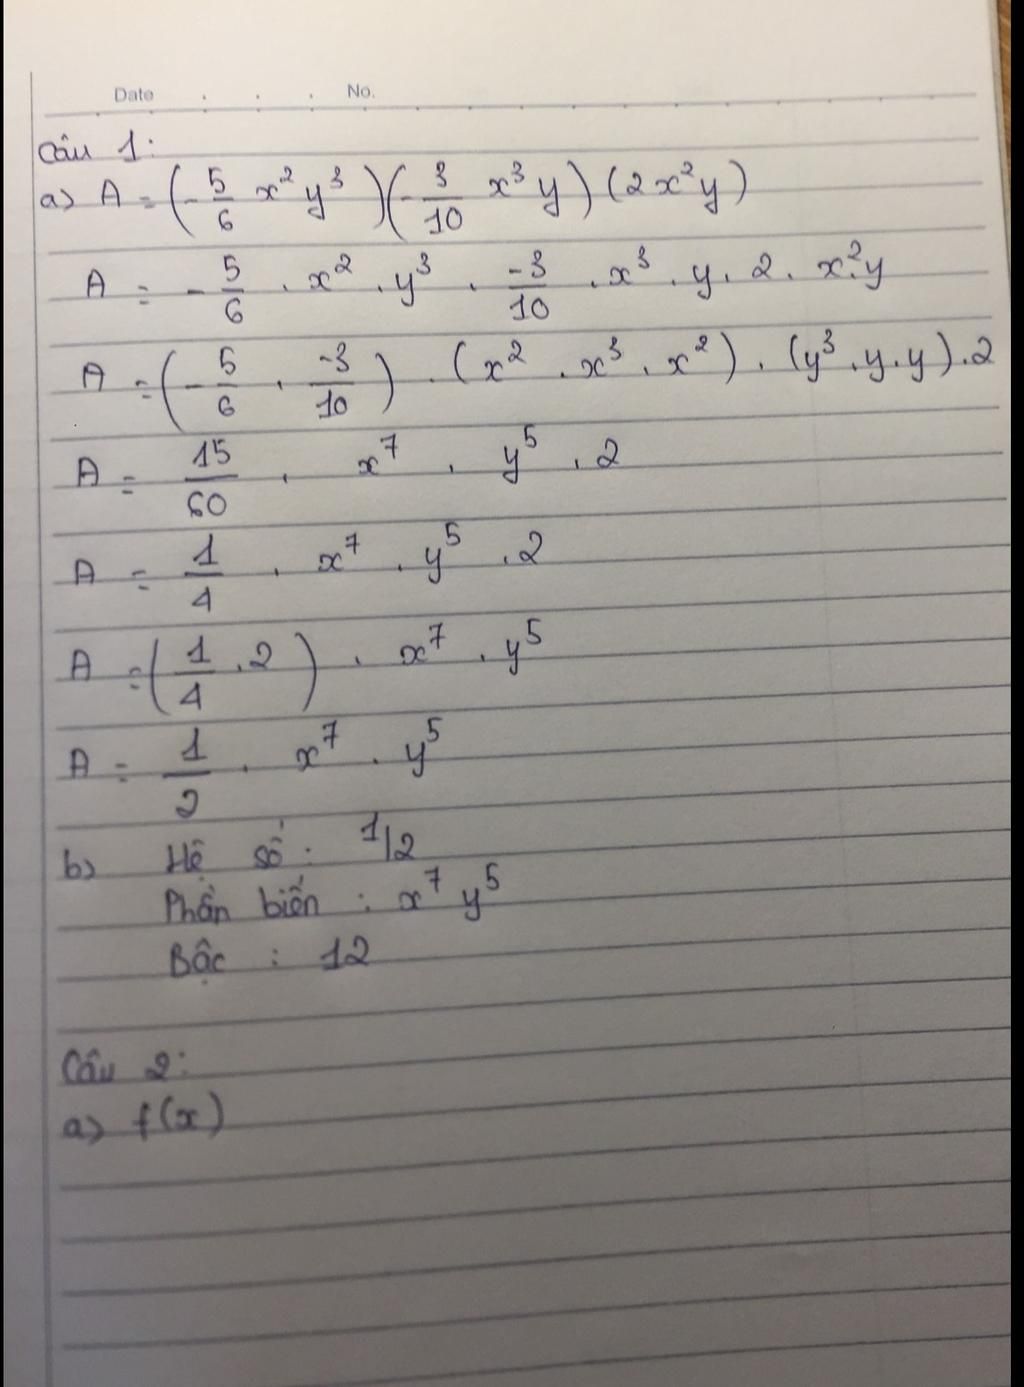 Date . . . No.
Câu 1:
a) A = (-5/6 x² y³)(-3/10 x³ y) (2x²y)
A = -5/6 . x² . y³ . -3/10 . x³ . y . 2 . x².y
A = (-5/6 . -3/10) . (x² . x³ . x²) . (y³ . y . y) . 2
A = 15/60 . x⁷ . y⁵ . 2
A = 1/4 . x⁷ . y⁵ . 2
A = (1/4 . 2) . x⁷ . y⁵
A = 1/2 . x⁷ . y⁵
b) Hệ số : 1/2
Phần biến : x⁷ y⁵
Bậc : 12
Câu 2:
a) f(x)